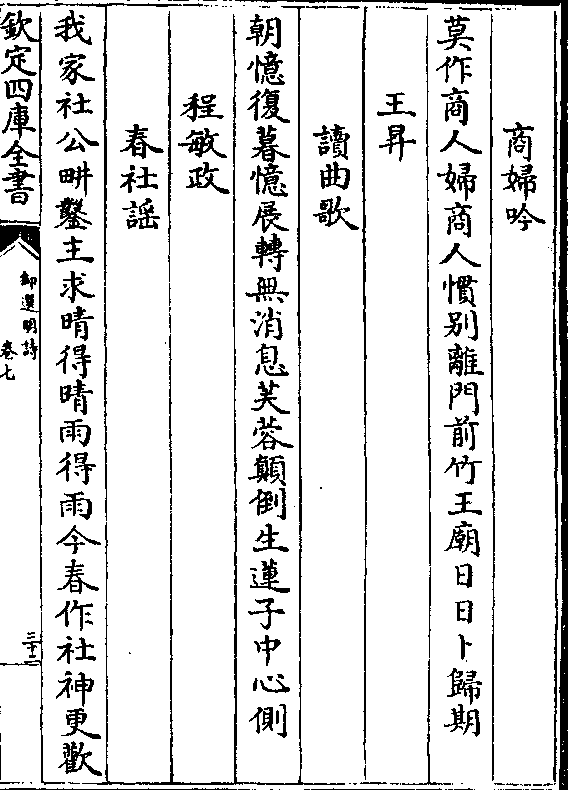 商婦吟
莫作商人婦商人慣别離門前竹王廟日日卜歸期
王昇
讀曲歌
朝憶復暮憶展轉無消息芙蓉顛倒生蓮子中心側
程敏政
春社謡
我家社公畊鑿主求晴得晴雨得雨今春作社神更歡
欽定四庫全書
御選明詩
卷七
三十二